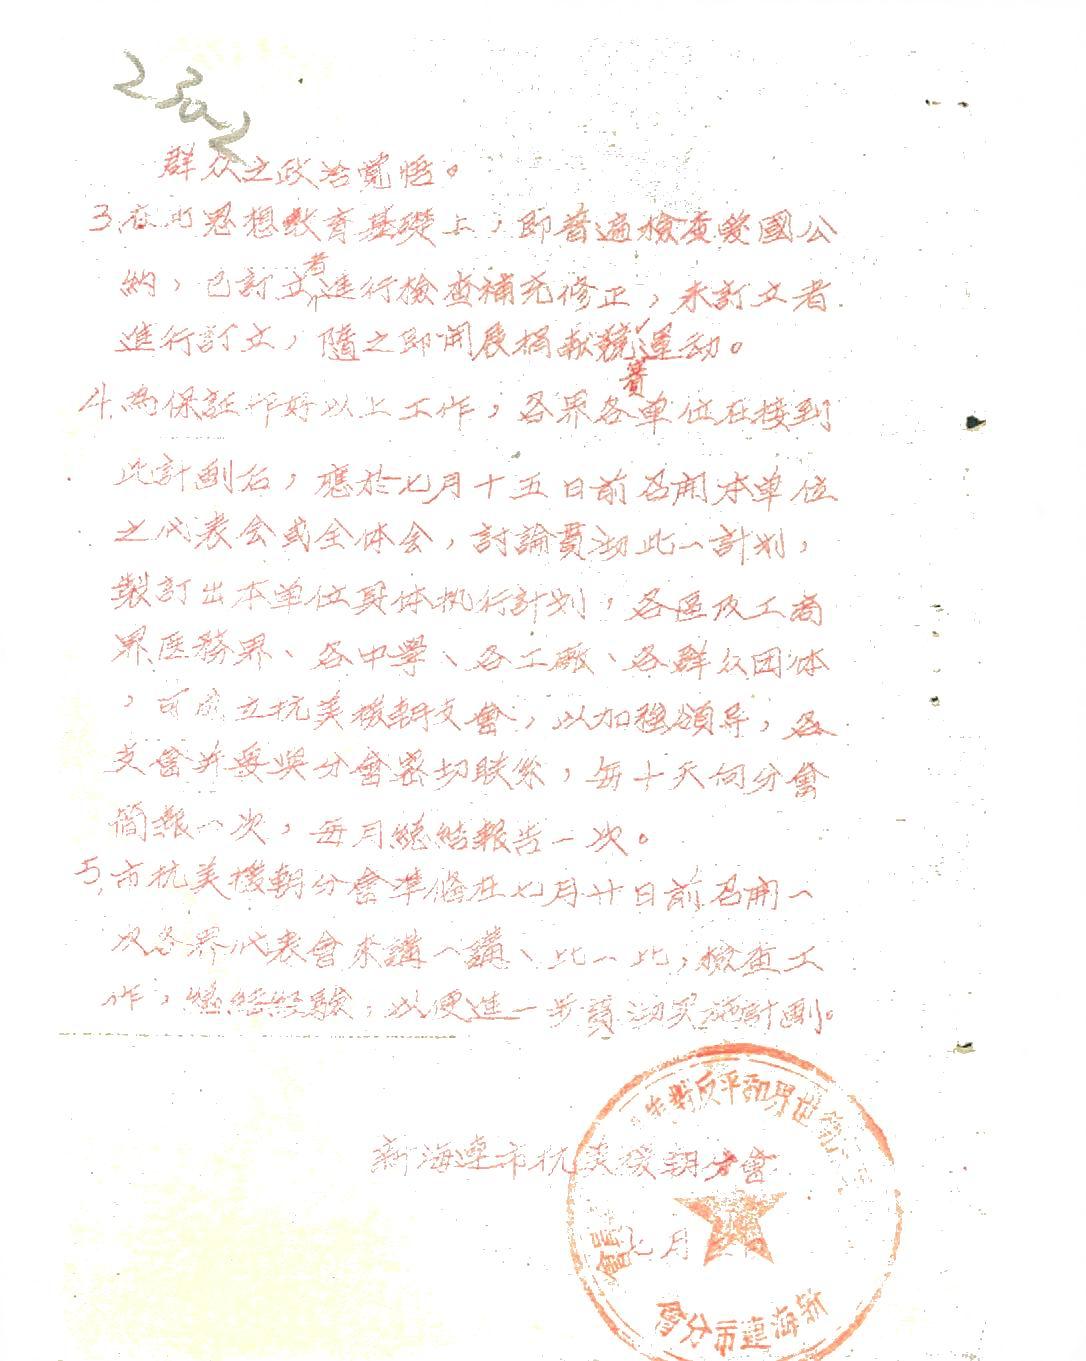 群众之政治覚悟。
3.在此思想教育基礎上，即普遍檢查愛國公
納，已訂立者進行檢查補充修正，未訂文者
進行訂立，隨之即開展捐献競賽運动。
4.為保証作好以上工作，各界各单位在接到
此計劃右，應於七月十五日前召開本单位
之代表会或全体会，討論貫沏此一計划，
製訂出本单位具体执行計划，各區及工商
界医務界、各中學、各工廠、各群众团体
，可成立抗美援朝支會，以加强領导，各
支會并要與分會密切联系，每十天向分會
簡報一次，每月總結報告一次。
5.市抗美援朝分會準俻在七月廿日前召開一
次各界代表會來講一講、比一比，檢查工
作，總結經驗，以便進一步貫沏实施計劃。
新海連市抗美援朝分會
七月
世界和平反對美
員會
新海連市分會